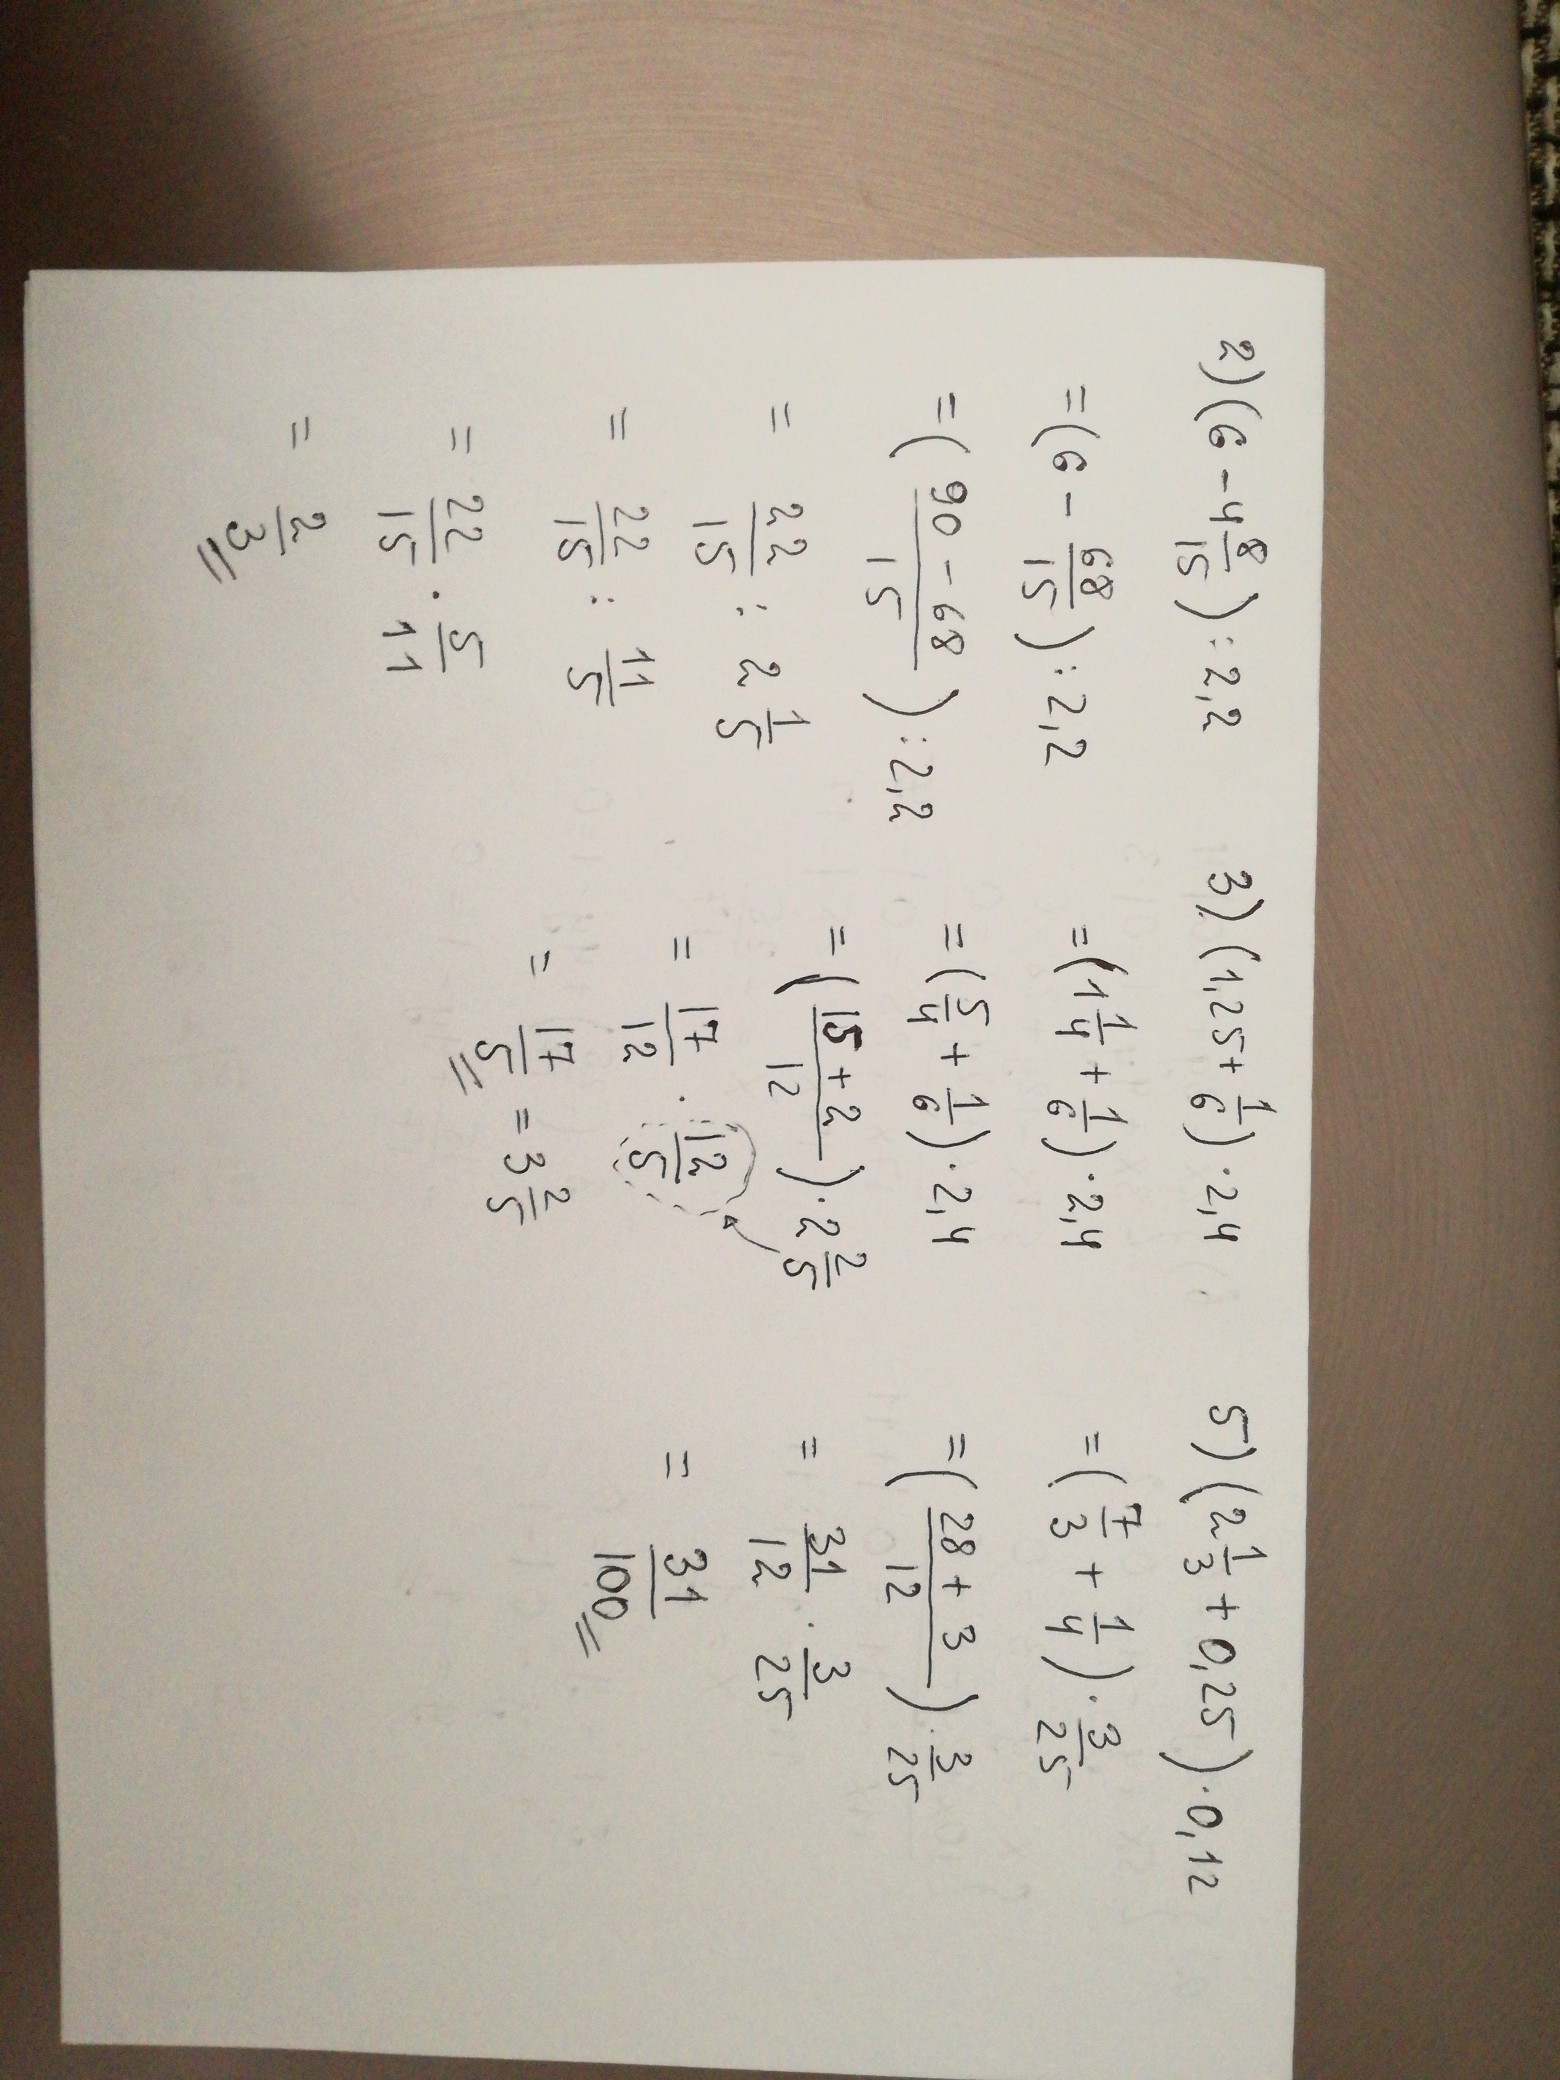 2) (6 - 4 8/15) : 2,2
= (6 - 68/15) : 2,2
= ((90 - 68)/15) : 2,2
= 22/15 : 2 1/5
= 22/15 : 11/5
= 22/15 · 5/11
= 2/3
3) (1,25 + 1/6) · 2,4
= (1 1/4 + 1/6) · 2,4
= (5/4 + 1/6) · 2,4
= ((15 + 2)/12) · 2 2/5
= 17/12 · 12/5
= 17/5 = 3 2/5
5) (2 1/3 + 0,25) · 0,12
= (7/3 + 1/4) · 3/25
= ((28 + 3)/12) · 3/25
= 31/12 · 3/25
= 31/100